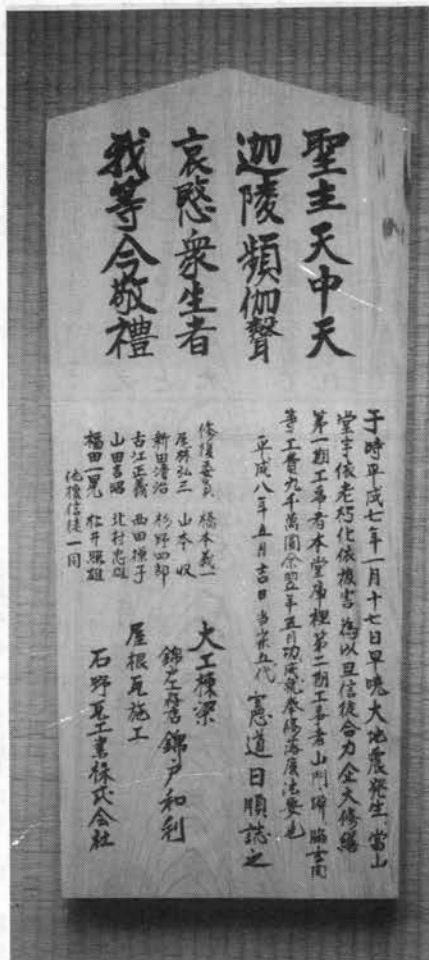 聖主天中天
迦陵頻伽聲
哀愍衆生者
我等今敬禮
于時平成七年一月十七日早曉大地震發生、當山
堂宇依老朽化依被害為以旦信徒合力企大修繕
第一期工事者本堂庫裡第二期工事者山門塀脇玄関
等工費九千萬圓余翌年五月功成就奉修落慶法要也
平成八年五月吉日 当山第五代 憲道日順誌之
修復委員 橋本義一
尾林弘三 山本 収
新田清治 杉野四郎
古江正義 西田様子
山田吉昭 北村忠雄
福田一晃 松井照雄
他檀信徒一同
大工棟梁
錦戸工務店 錦戸和利
屋根瓦施工
石野瓦工業株式会社